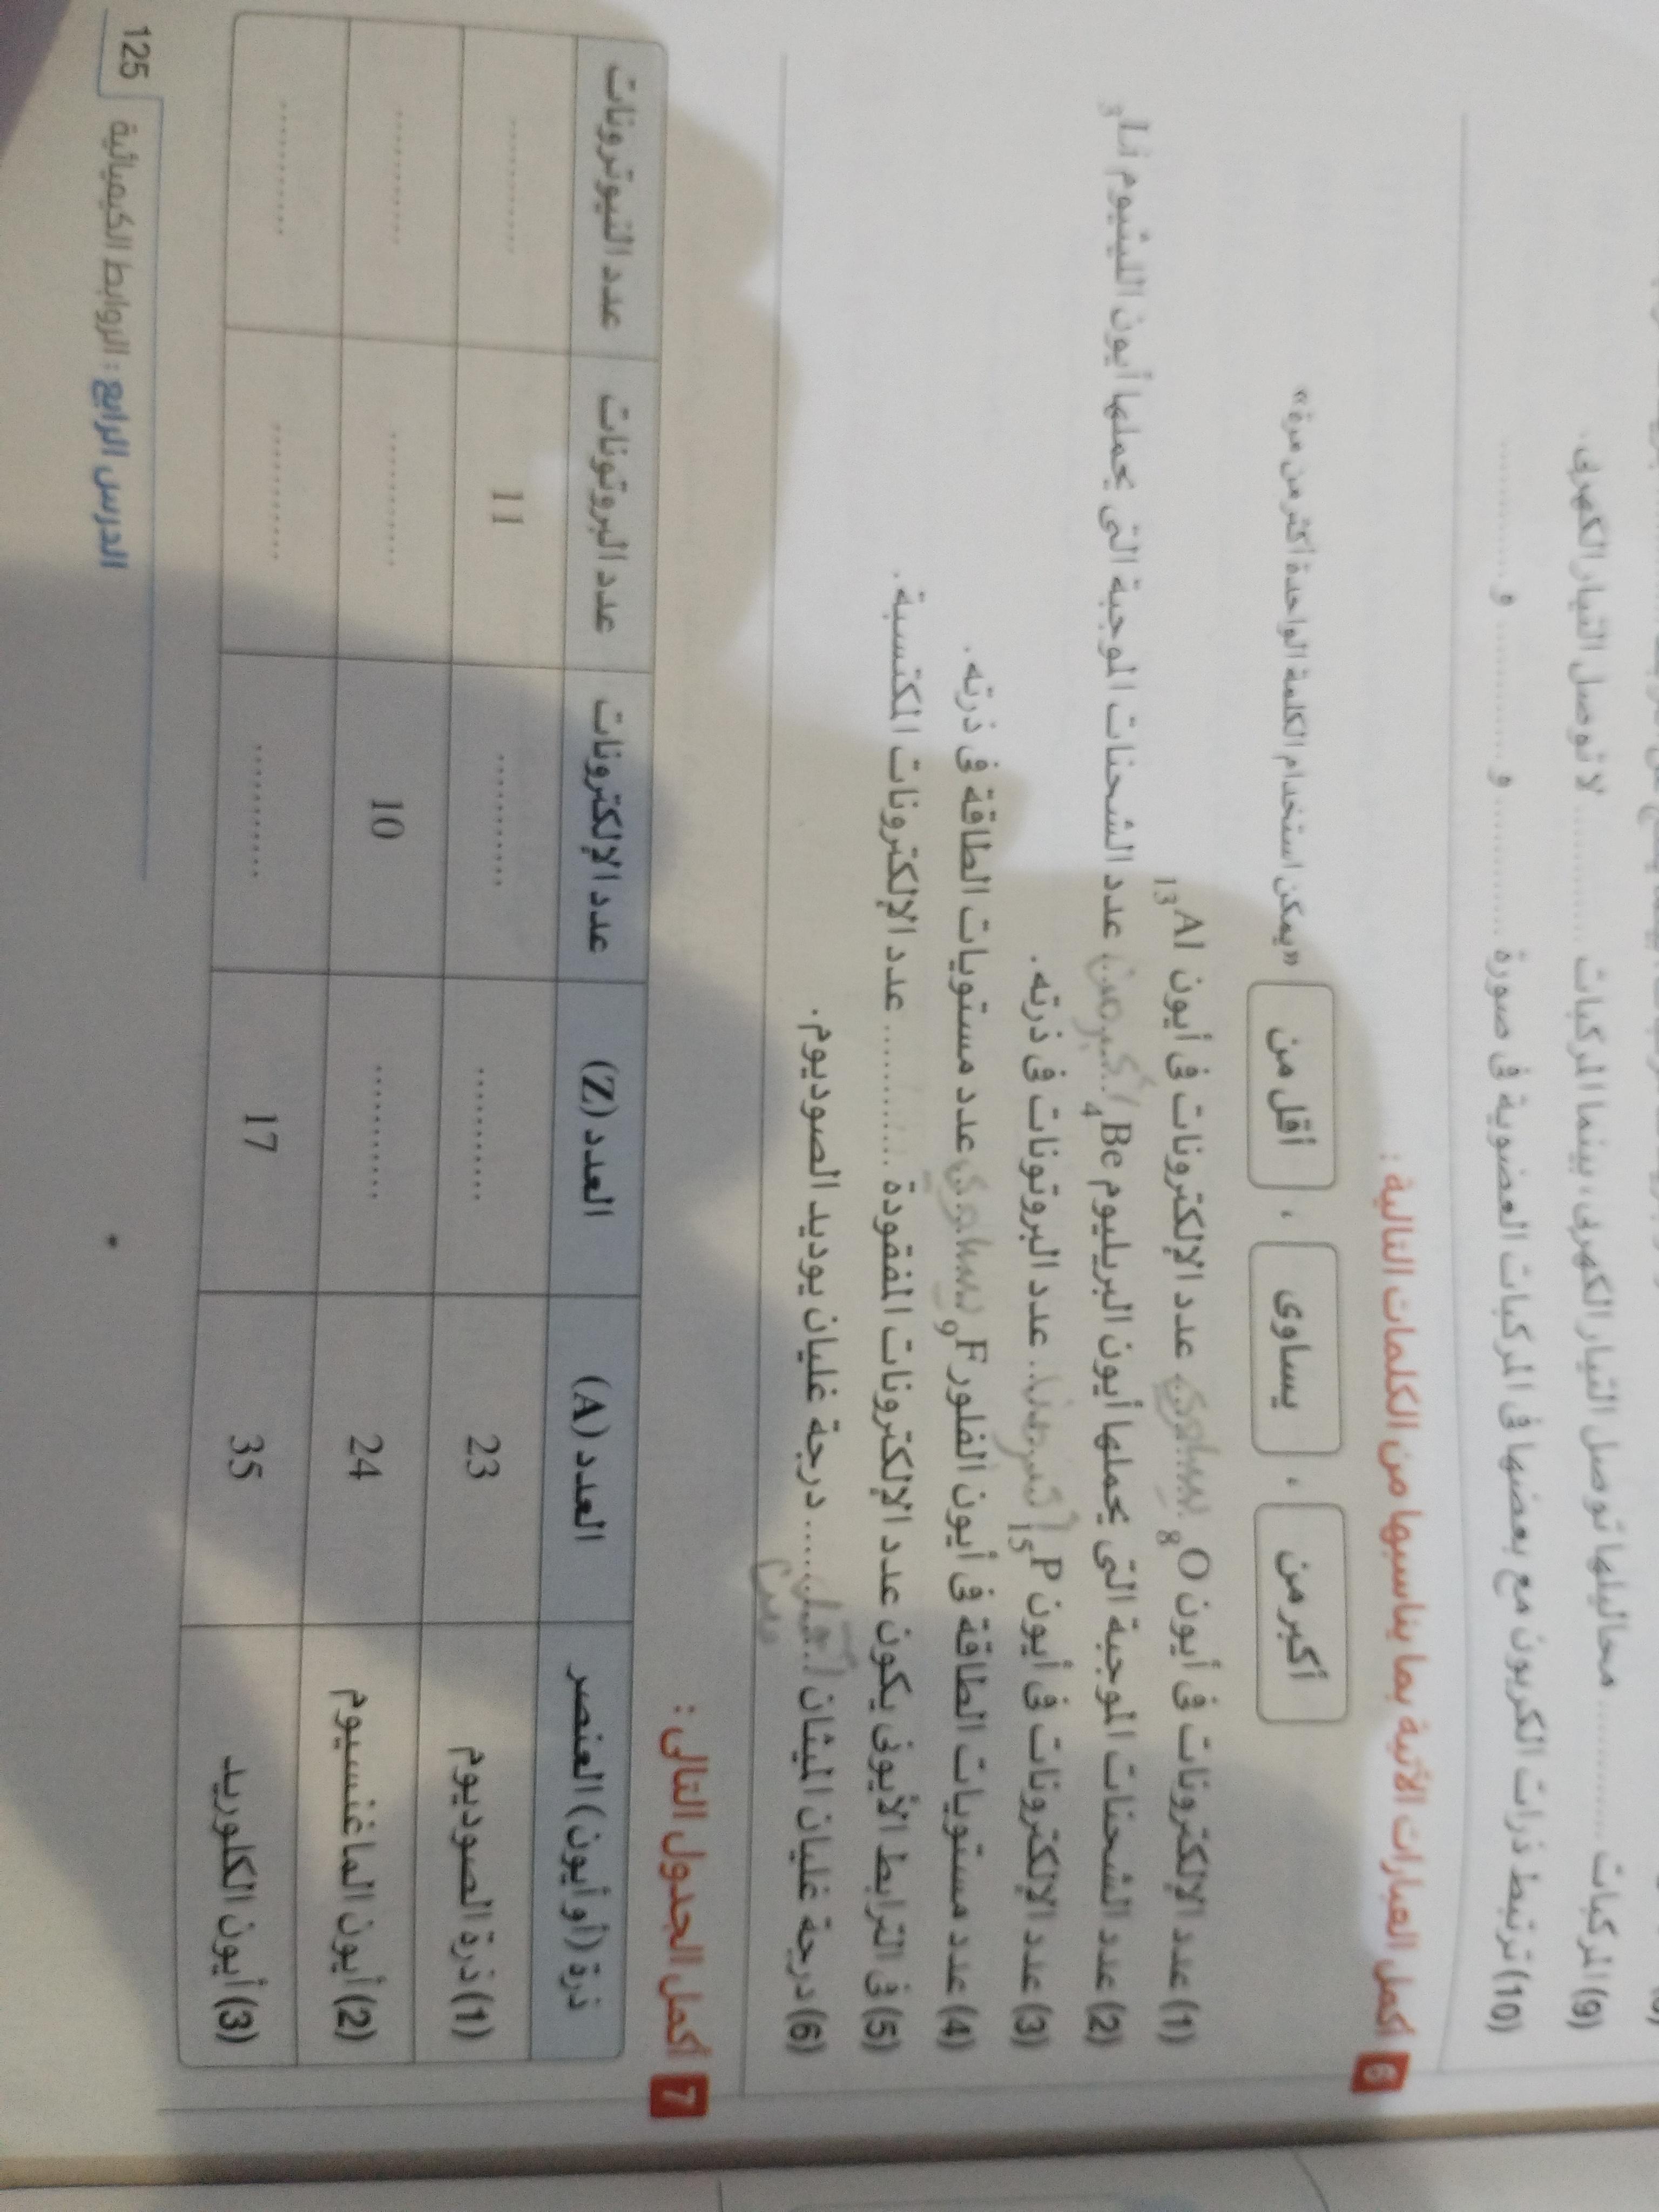 (9) المركبات ............ محاليلها توصل التيار الكهربى، بينما المركبات ............ لا توصل التيار الكهربى.
(10) ترتبط ذرات الكربون مع بعضها فى المركبات العضوية فى صورة ............ و ............ و ............
6 أكمل العبارات الآتية بما يناسبها من الكلمات التالية :
أكبر من ، يساوى ، أقل من «يمكن استخدام الكلمة الواحدة أكثر من مرة»
(1) عدد الإلكترونات فى أيون 8O يساوى عدد الإلكترونات فى أيون 13Al
(2) عدد الشحنات الموجبة التى يحملها أيون البريليوم 4Be أكبر من عدد الشحنات الموجبة التى يحملها أيون الليثيوم 3Li
(3) عدد الإلكترونات فى أيون 15P أكبر من عدد البروتونات فى ذرته.
(4) عدد مستويات الطاقة فى أيون الفلور 9F يساوى عدد مستويات الطاقة فى ذرته.
(5) فى الترابط الأيونى يكون عدد الإلكترونات المفقودة ............ عدد الإلكترونات المكتسبة.
(6) درجة غليان الميثان أقل من درجة غليان يوديد الصوديوم.
7 أكمل الجدول التالى :
ذرة (أو أيون) العنصر العدد (A) العدد (Z) عدد الإلكترونات عدد البروتونات عدد النيوترونات
(1) ذرة الصوديوم 23 ............ ............ 11 ............
(2) أيون الماغنسيوم 24 ............ 10 ............ ............
(3) أيون الكلوريد 35 17 ............ ............ ............
الدرس الرابع : الروابط الكيميائية 125